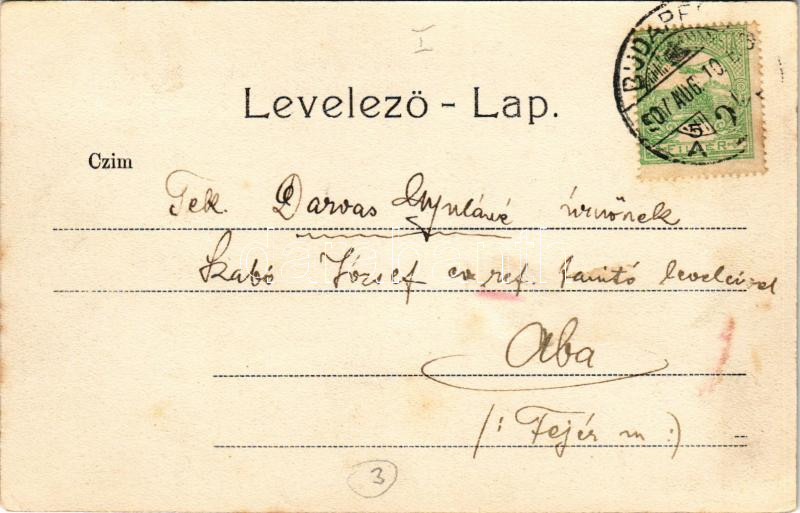 I
BUDAPEST
907 AUG. 10
5
A
FILLÉR
Levelező - Lap.
Czim
Tek. Darvas Gyuláné úrnőnek
Szabó József ev. ref. tanító leveleivel
Aba
(: Fejér m :)
3